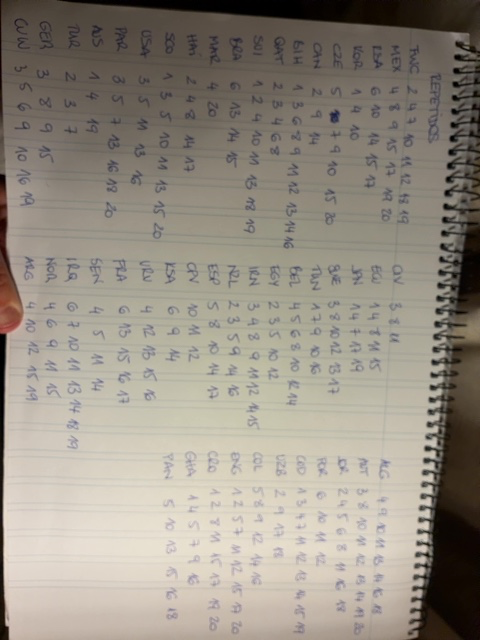 REPETIDOS
FWC 2 4 7 10 11 12 18 19
MEX 4 8 9 15 17 19 20
RSA 6 10 14 15 17
KOR 1 4 10
CZE 5 7 9 10 15 20
CAN 2 9 14
BIH 1 3 6 8 9 11 12 13 14 16
QAT 2 3 4 6 8
SUI 1 2 4 10 11 13 18 19
BRA 6 13 14 15
MAR 4 20
HAI 2 4 8 14 17
SCO 1 3 5 10 11 13 15 20
USA 3 5 11 13 16
PAR 3 5 7 13 16 18 20
AUS 1 4 19
TUR 2 3 7
GER 3 8 9 15
CUW 3 5 6 9 10 16 19
CIV 3 8 11
ECU 1 4 8 11 15
JPN 1 4 7 17 19
SWE 3 8 10 12 13 17
TUN 1 7 9 10 16
BEL 4 5 6 8 10 12 14
EGY 2 3 5 10 12
IRN 3 4 8 9 11 12 14 15
NZL 2 3 5 9 14 16
ESP 5 8 10 14 17
CPV 10 11 12
KSA 6 9 14
URU 4 12 13 15 16
FRA 6 13 15 16 17
SEN 4 5 11 14
IRQ 6 7 10 11 13 14 18 19
NOR 4 6 9 11 15
ARG 4 10 12 15 19
ALG 4 9 10 11 13 14 16 18
AUT 3 8 10 11 12 13 14 19 20
JOR 2 4 5 6 8 11 16 18
POR 6 10 11 12
COD 1 3 4 7 11 12 13 14 15 19
UZB 2 9 17 18
COL 5 8 9 12 14 16
ENG 1 2 5 7 11 12 15 17 20
CRO 1 2 8 11 15 17 19 20
GHA 1 4 5 7 9 16
PAN 5 10 13 15 16 18